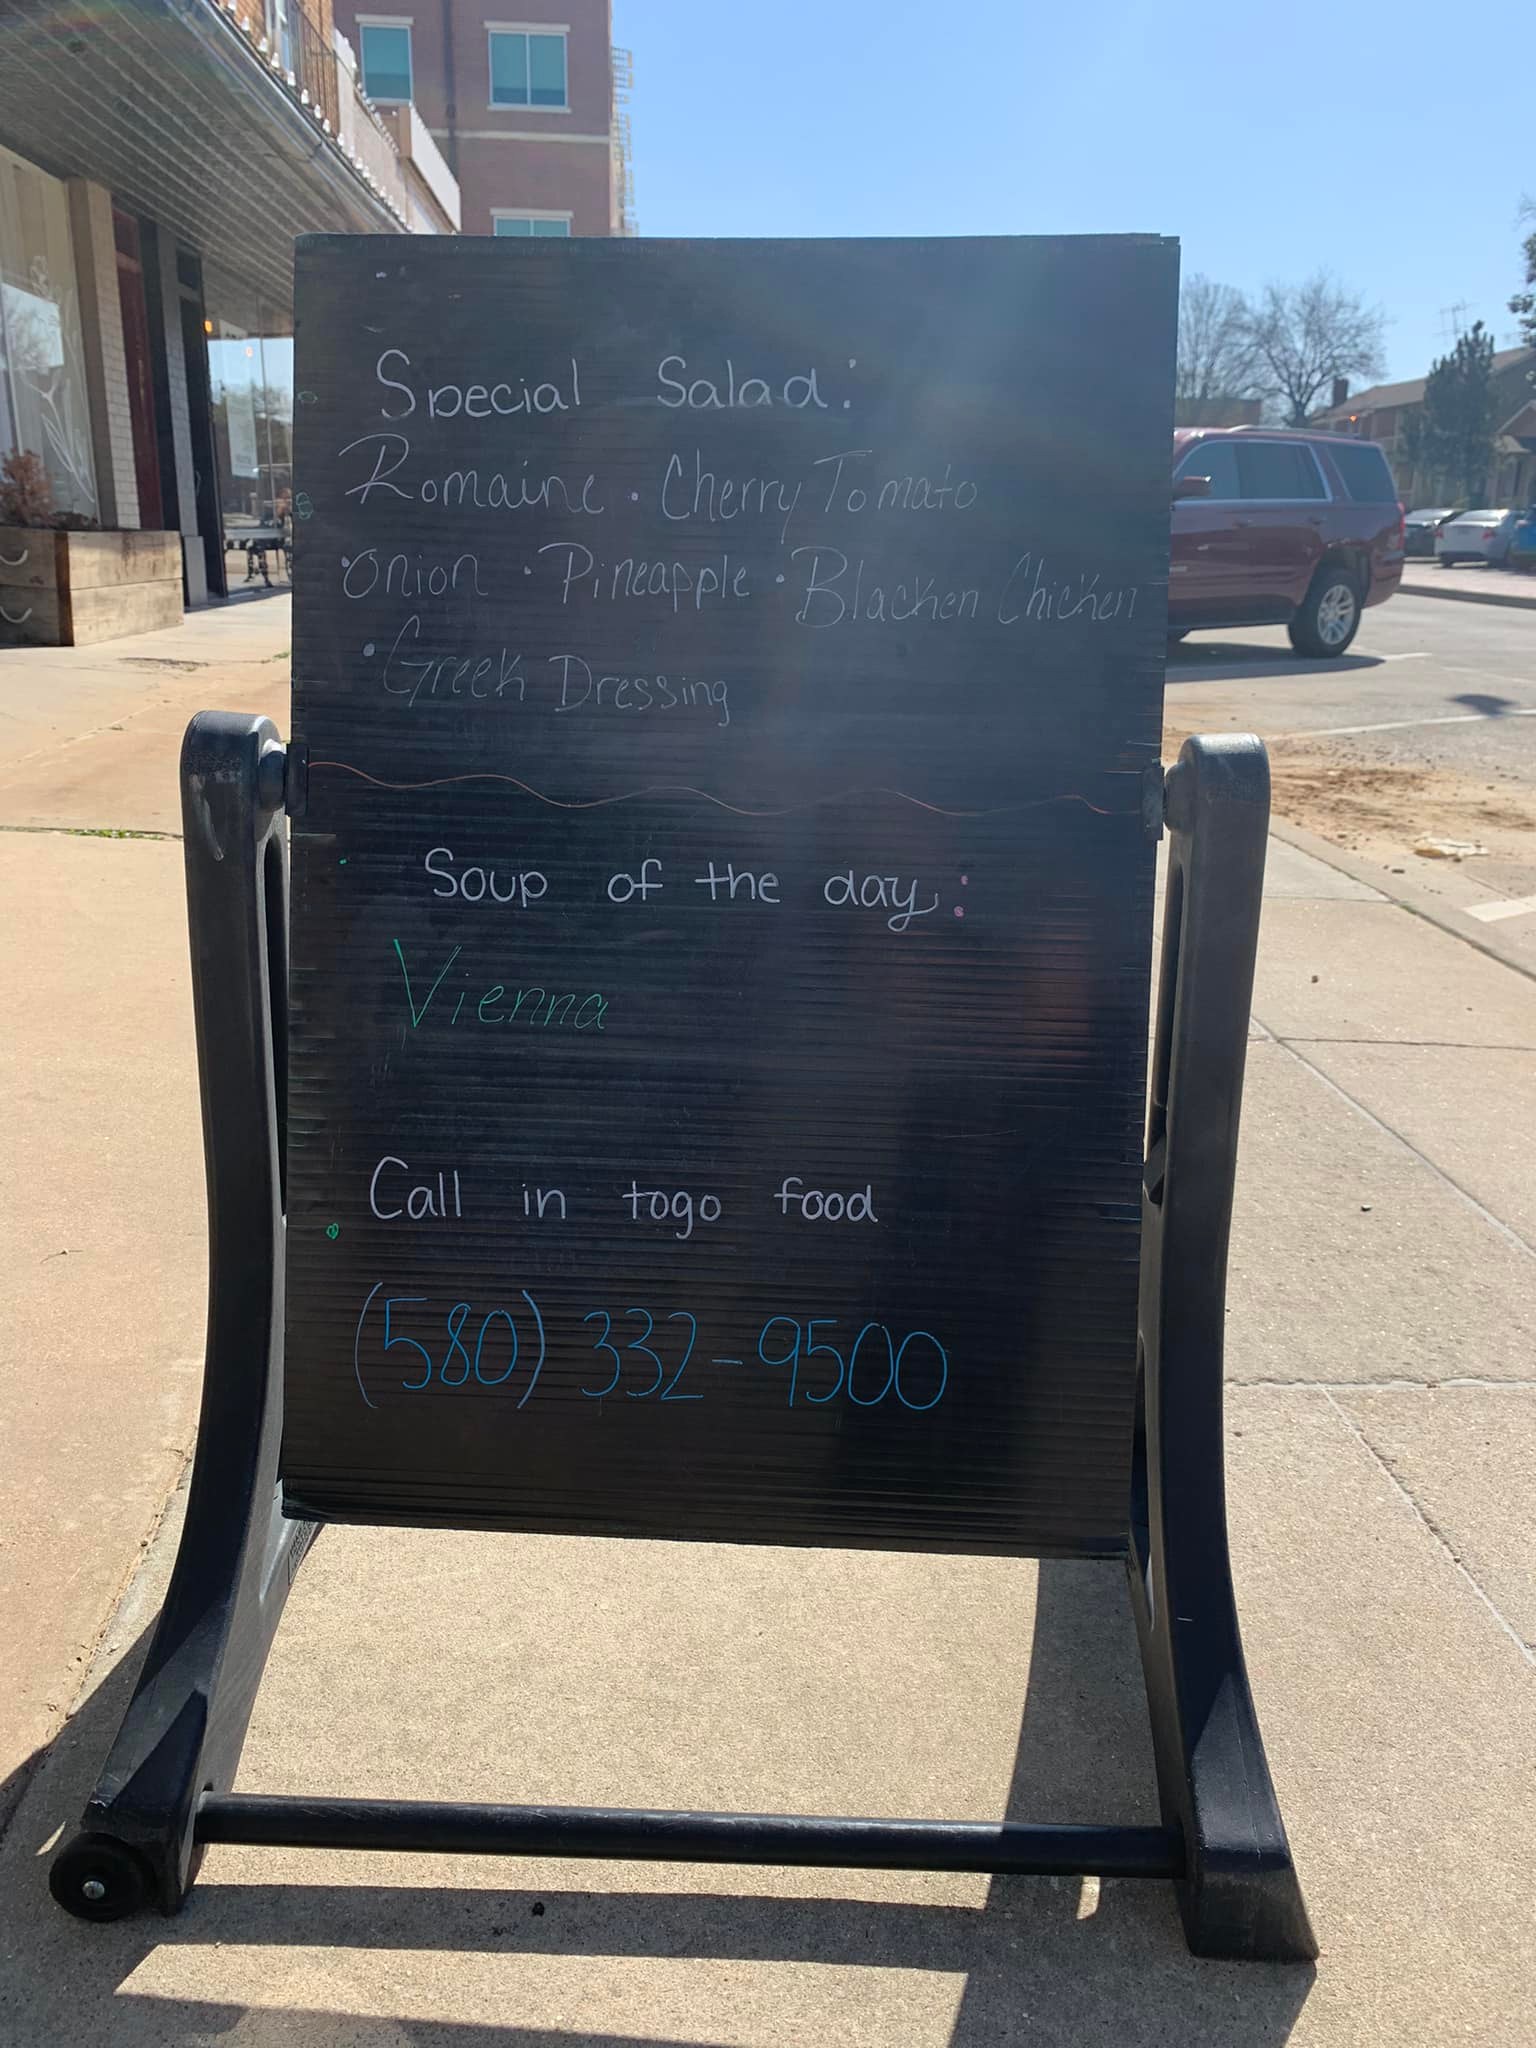 Special Salad:
Romaine • Cherry Tomato
• Onion • Pineapple • Blacken Chicken
• Greek Dressing
Soup of the day:
Vienna
Call in togo food
(580) 332-9500